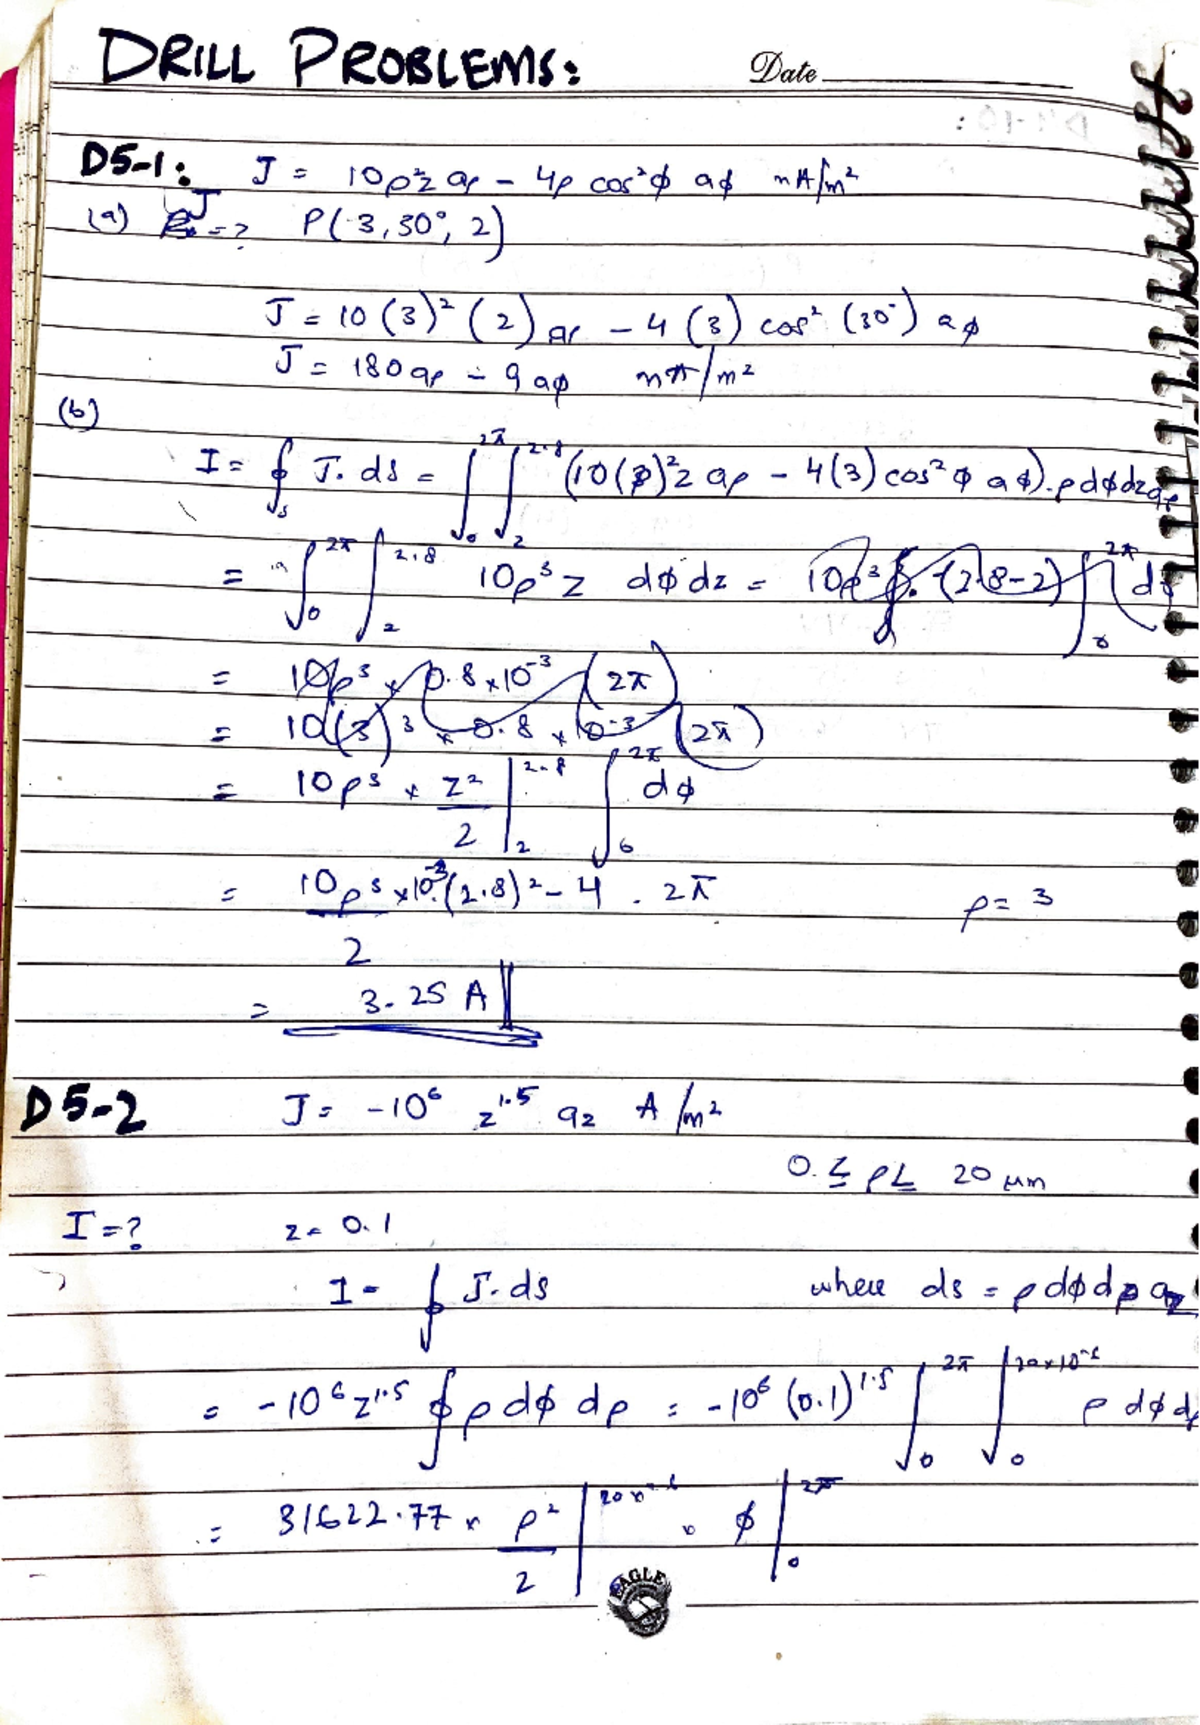 DRILL PROBLEMS:
Date
D5-1: J = 10ρ²z aρ - 4ρ cos²φ aφ mA/m²
(a) J = ? P(3, 30°, 2)
J = 10 (3)² (2) aρ - 4 (3) cos² (30°) aφ
J = 180 aρ - 9 aφ mA/m²
(b)
I = ∮s J. ds = ∫₀^2π ∫₂^2.8 (10(ρ)²z aρ - 4(3) cos²φ aφ). ρ dφ dz aρ
= ∫₀^2π ∫₂^2.8 10ρ³ z dφ dz = 10ρ³ . (2.8-2) ∫₀^2π dφ
= 10ρ³ × 0.8 × 10⁻³ (2π)
= 10(3)³ × 0.8 × 10⁻³ (2π)
= 10ρ³ × z²/2 |₂^2.8 ∫₀^2π dφ
= 10ρ³ × 10⁻³ (2.8)² - 4 . 2π ρ = 3
2
= 3.25 A
D5-2 J = -10⁶ z^1.5 az A/m²
0 ≤ ρ ≤ 20 μm
I = ? z = 0.1
I = ∮ J. ds where ds = ρ dφ dρ az
= -10⁶ z^1.5 ∮ ρ dφ dρ = -10⁶ (0.1)^1.5 ∫₀^2π ∫₀^20×10⁻⁶ ρ dφ dρ
= 31622.77 × ρ²/2 |^20×10⁻⁶ × φ |₀^2π
EAGLE